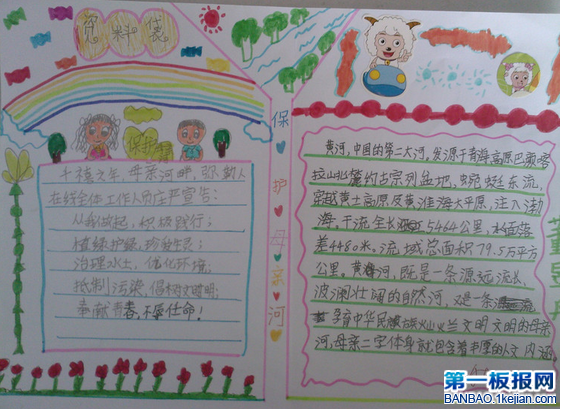 资料袋
保护
千禧之年,母亲河畔,
在线全体工作人员庄严宣告:
从我做起,积极践行;
植绿护绿,珍爱生灵;
治理水土,优化环境;
抵制污染,倡树文明;
奉献青春,不辱任命!
保护母亲河
黄河,中国的第二大河,发源于青海高原巴颜喀
拉山北麓约古宗列盆地,蜿蜒东流,
穿越黄土高原及黄淮海大平原,注入渤
海。干流全长5464公里,水面落
差4480米。流域总面积79.5万平方
公里。黄河,既是一条源远流长、
波澜壮阔的自然河,又是一条
孕育中华民族灿烂文明文明的母亲
河,母亲二字体身就包含着丰厚的人文内涵
第一板报网
BANBAO.1kejian.com